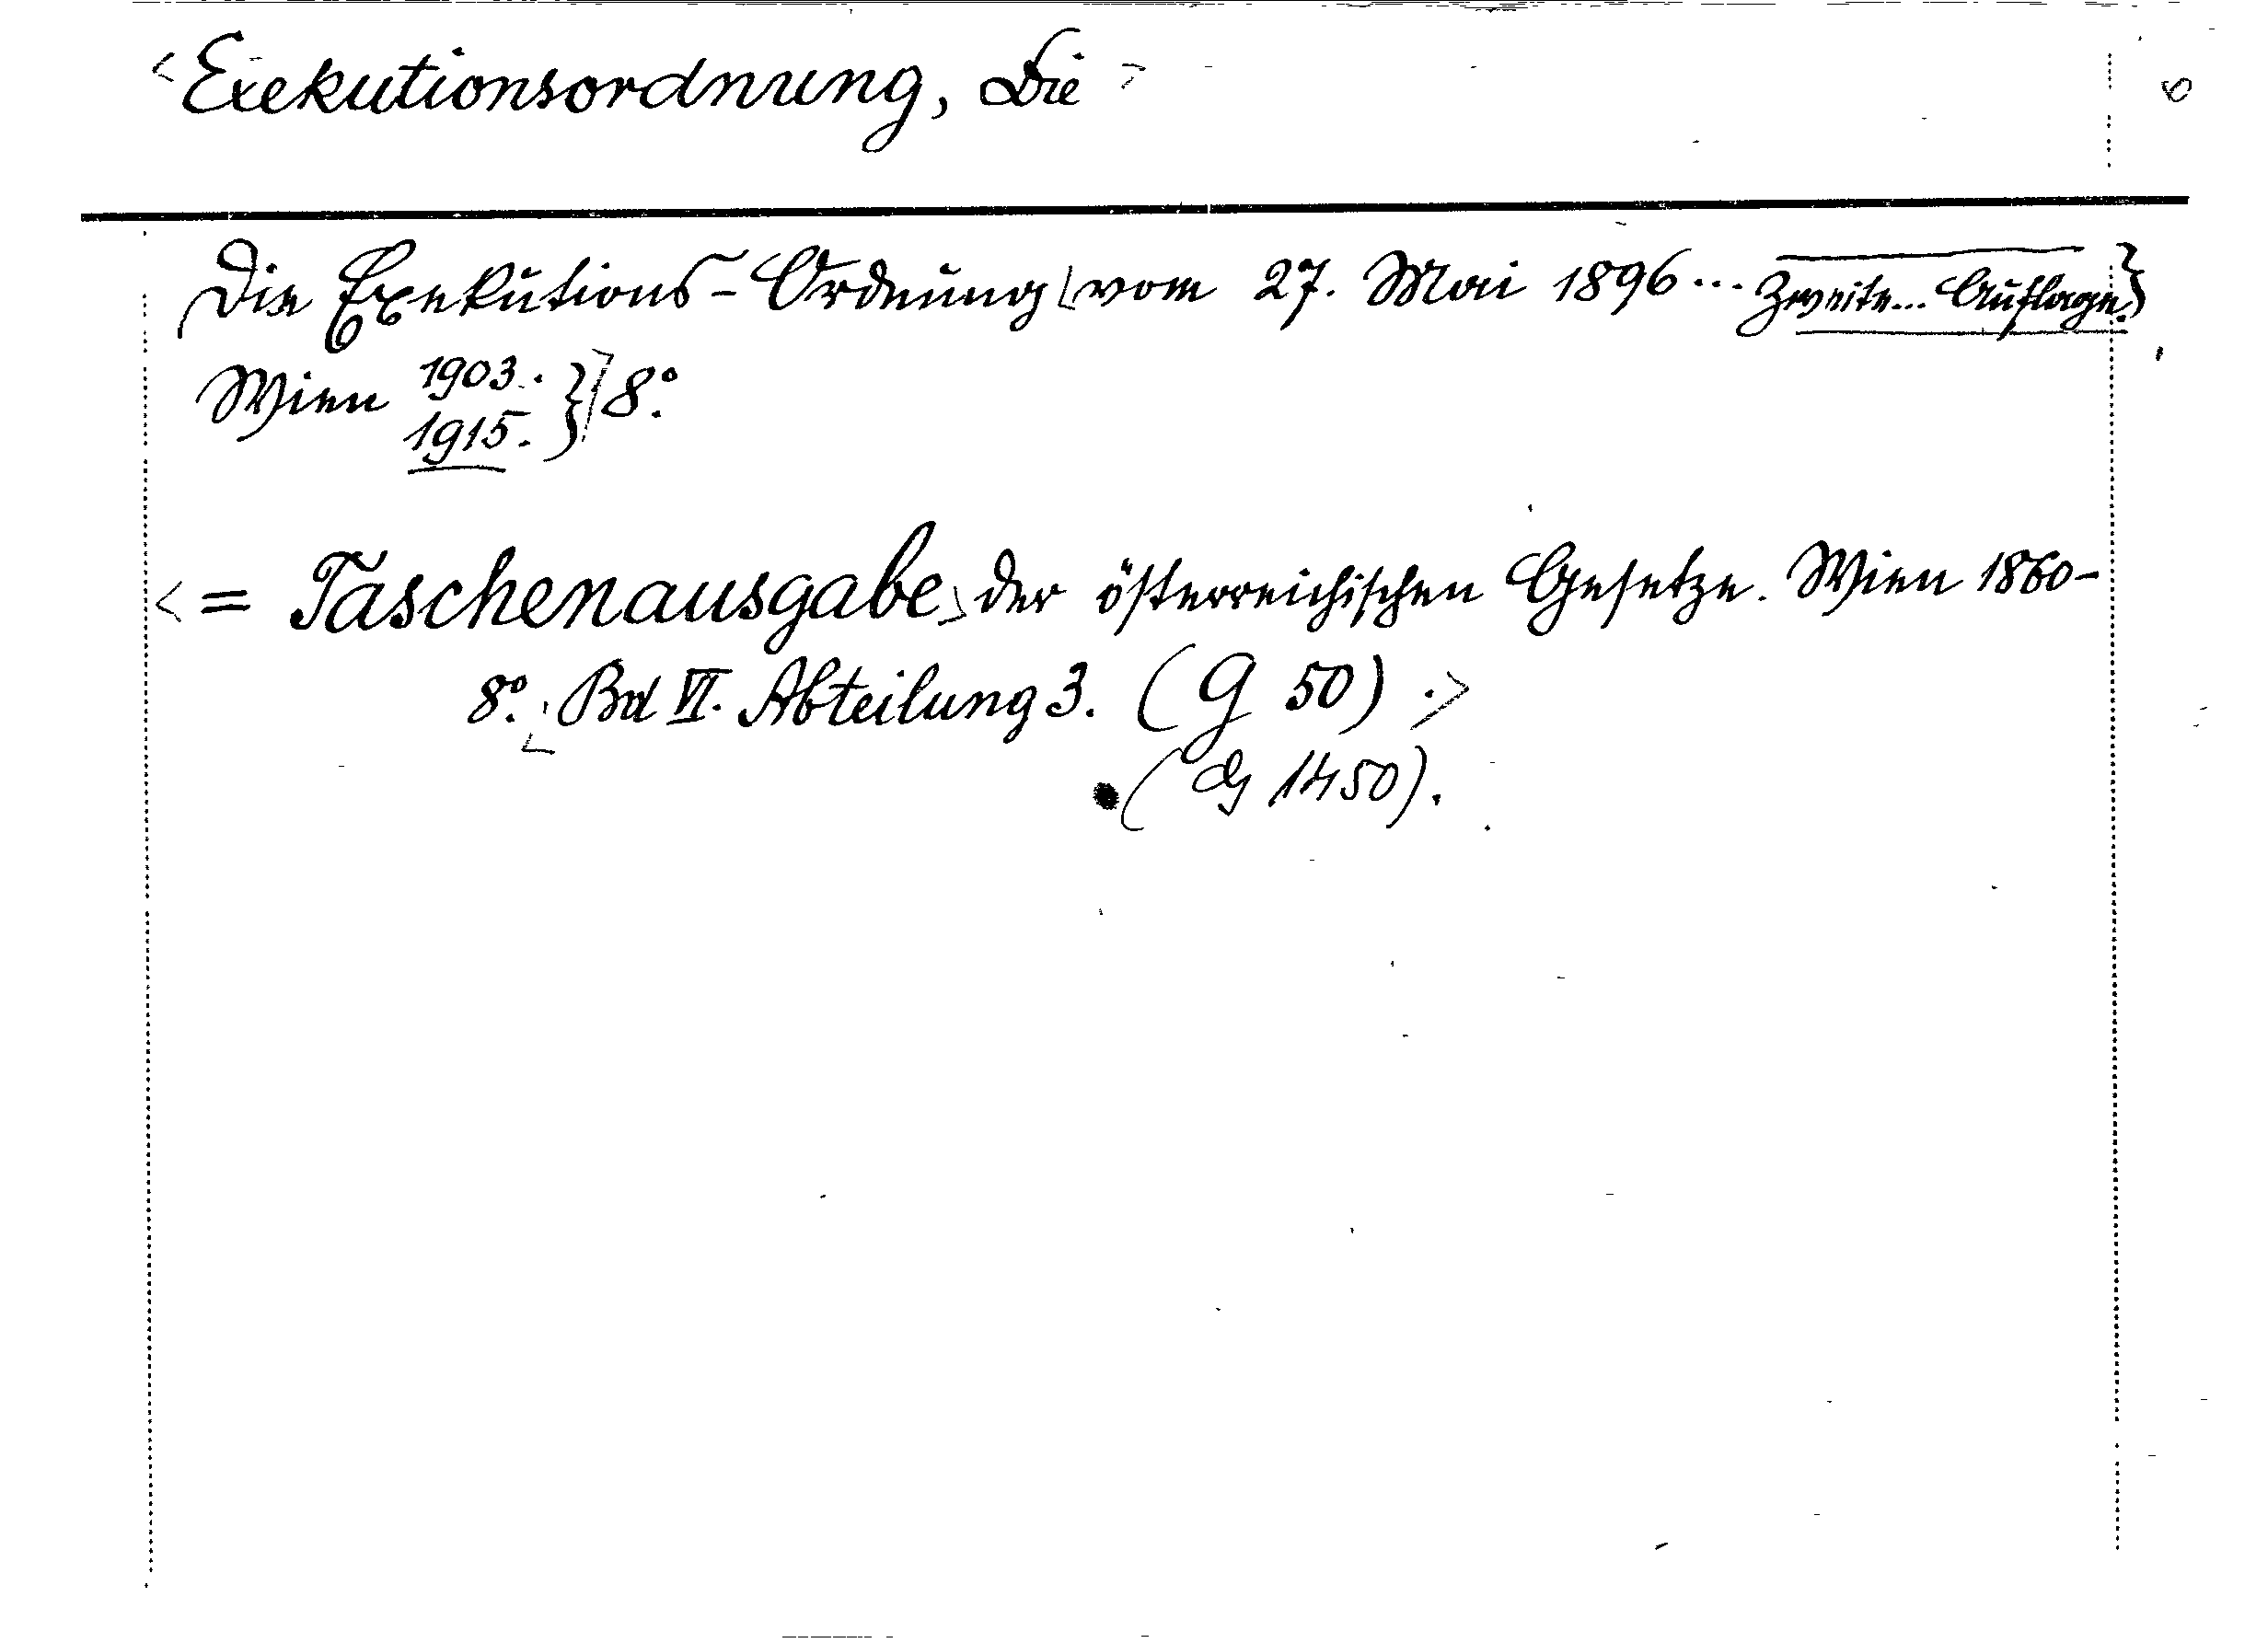 <Exekutionsordnung, Die>
Die Exekutions-Ordnung vom 27. Mai 1896... Zweite... Auflage.}
Wien 1903. 8°.
1915.}
<= Taschenausgabe> der österreichischen Gesetze. Wien 1860-
8°. <Bd VI. Abteilung 3. (G 50).>
(G 1450).